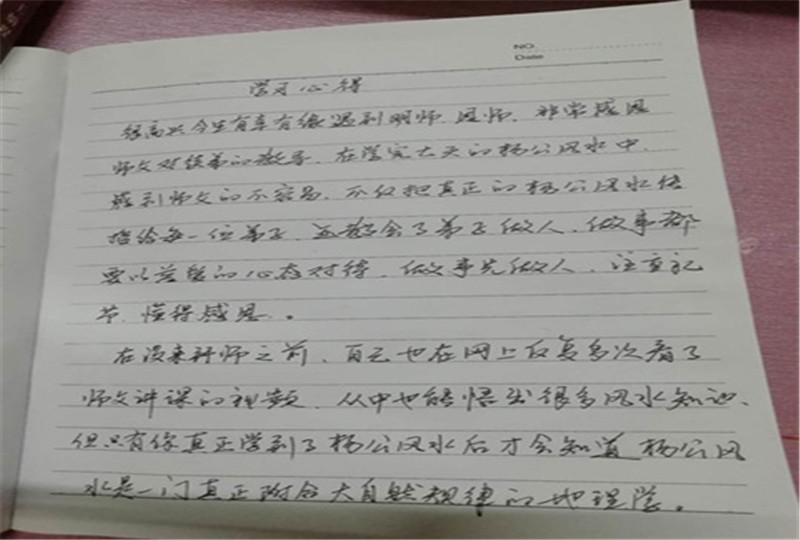 NO.
Date
学习心得
很高兴今生有幸有缘遇到明师、恩师，非常感恩
师父对徒弟的教导，在学完六天的杨公风水中，
感到师父的不容易，不仅把真正的杨公风水传
授给每一位弟子，还教会了弟子做人，做事都
要以善良的心态对待，做事先做人，注重礼
节，懂得感恩。
在没来拜师之前，自己也在网上反复多次看了
师父讲课的视频，从中也能悟出很多风水知识，
但只有你真正学到了杨公风水后才会知道杨公风
水是一门真正附合大自然规律的地理学。